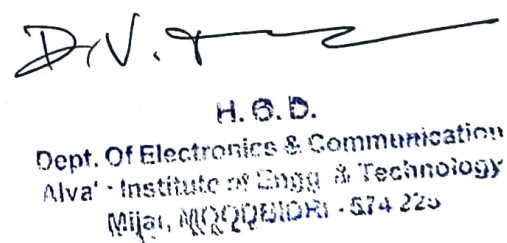 D.V.
H. O. D.
Dept. Of Electronics & Communication
Alva' - Institute of Engg. & Technology
Mijar, MOODBIDRI - 574 225